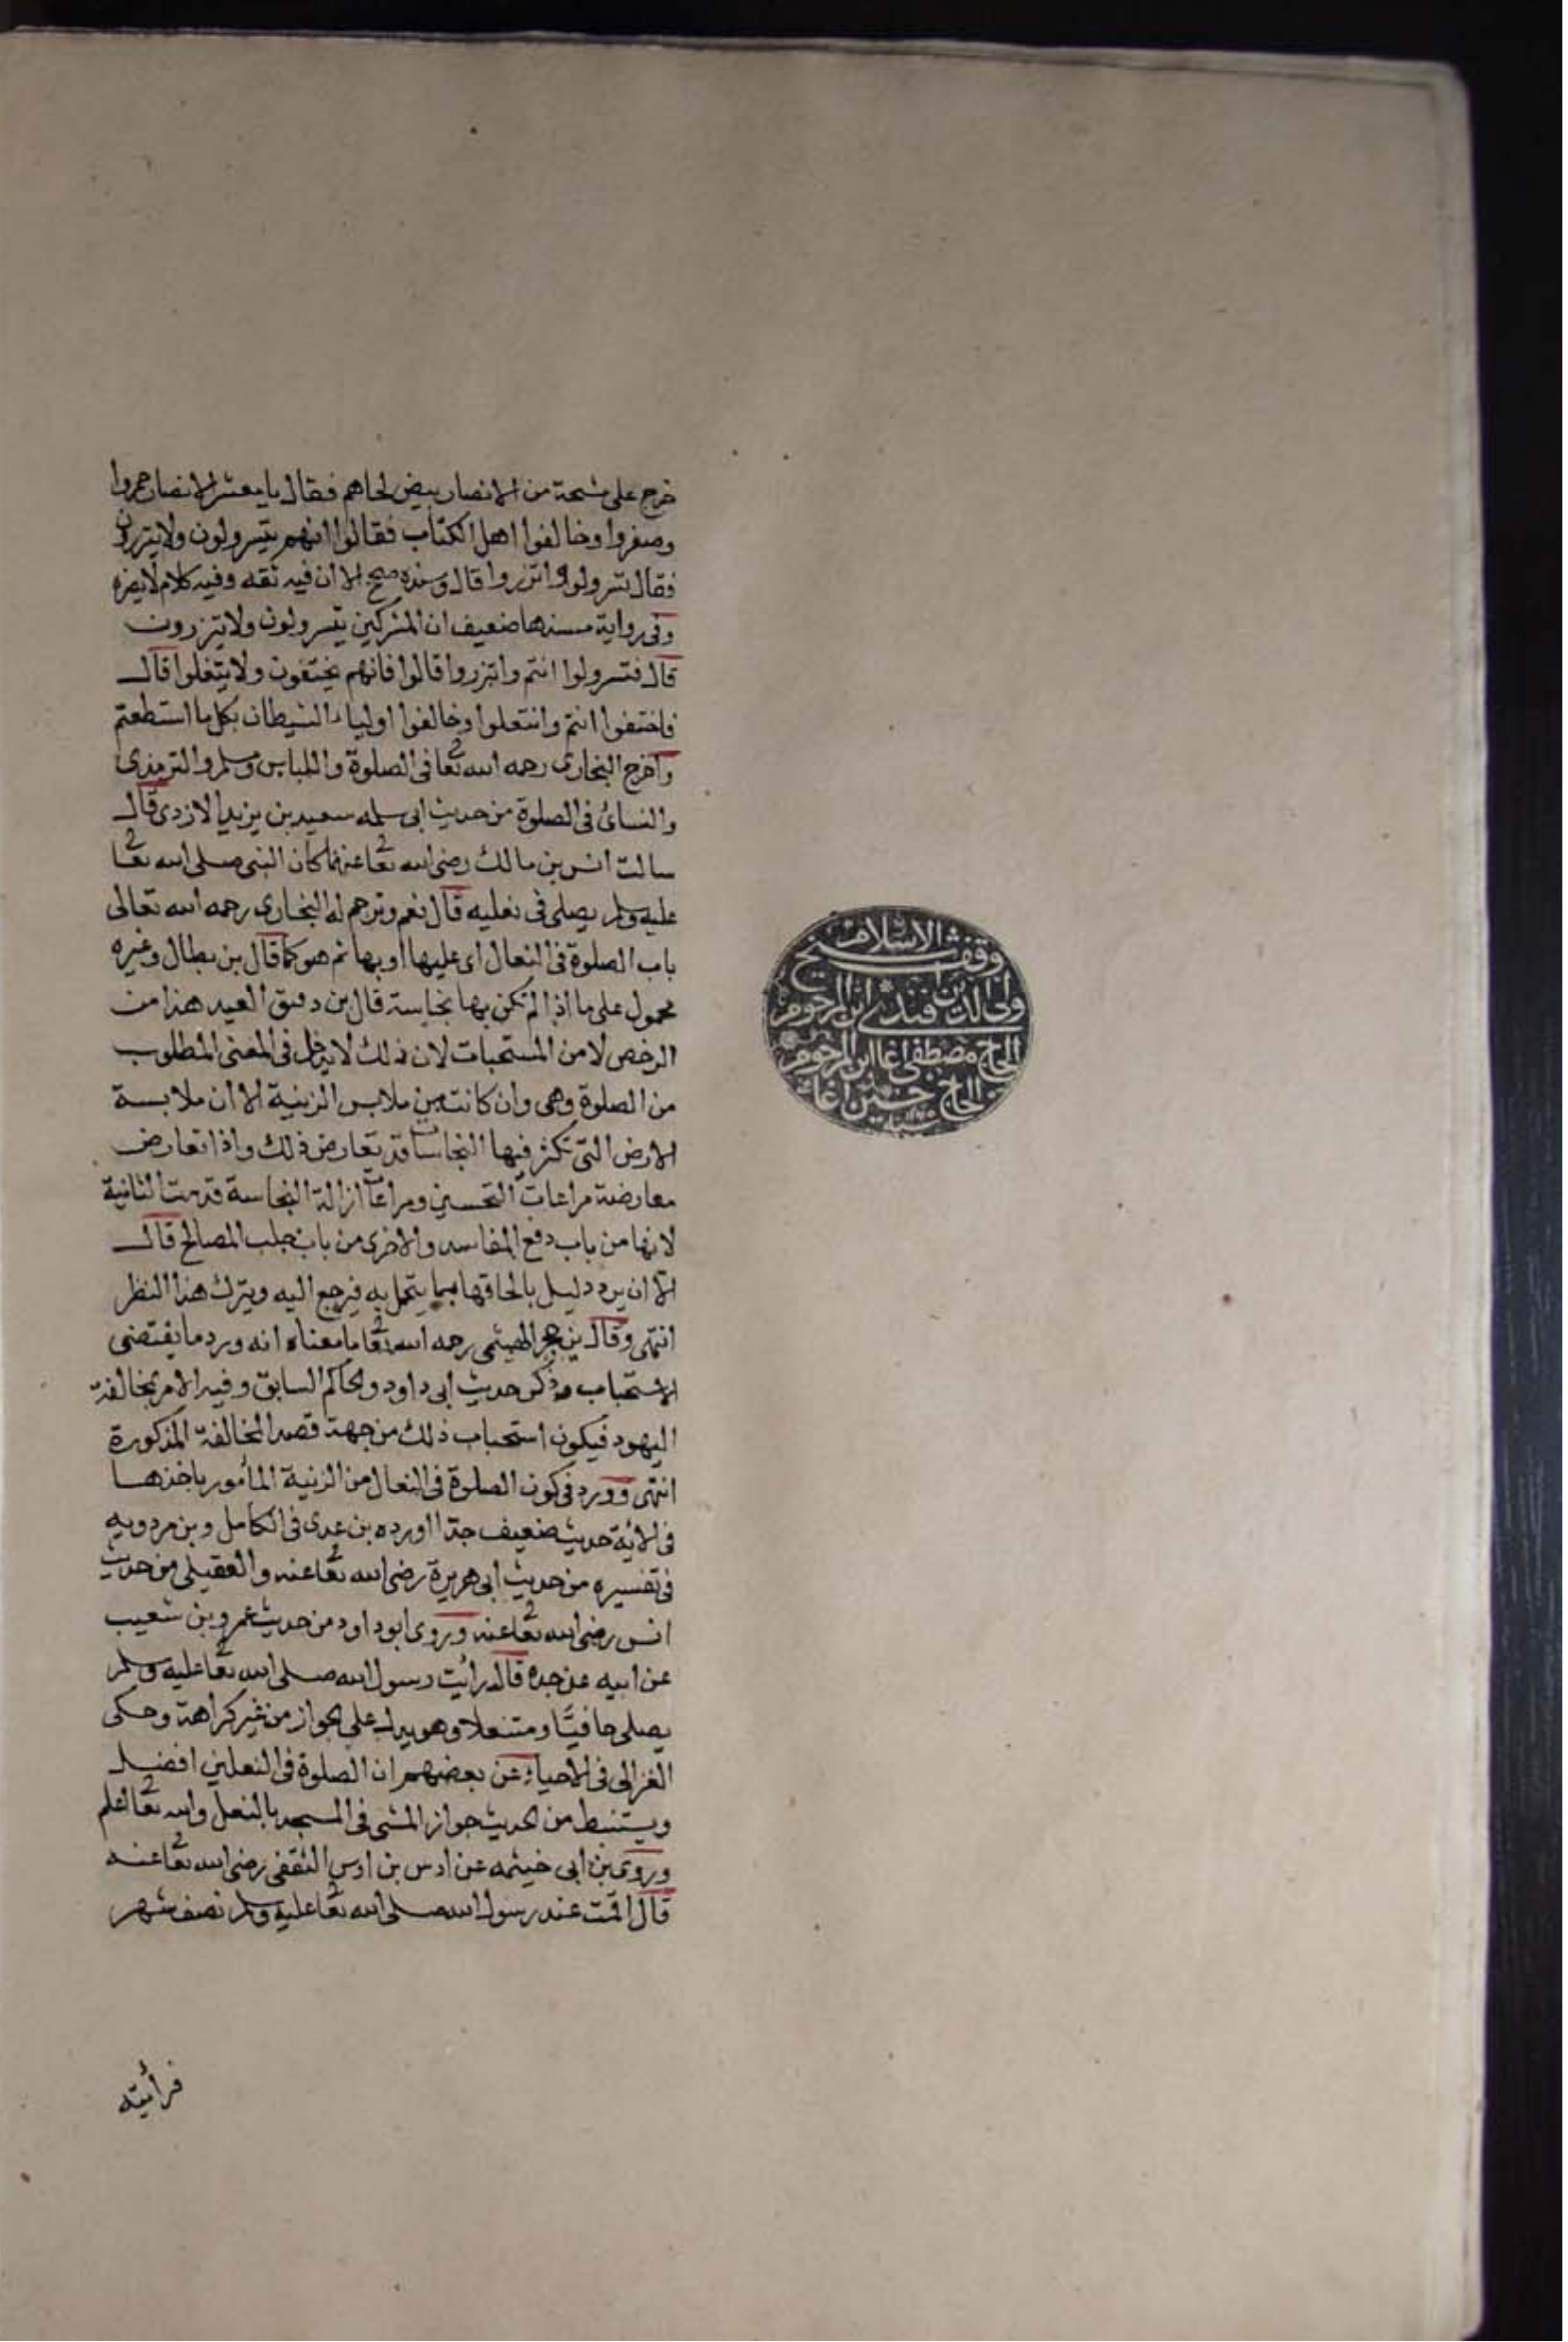 خرج على مشيحة من الانصار بيض لحاهم فقال يا معشر الانصار حمروا
وصفروا وخالفوا اهل الكتاب فقالوا انهم يتسرولون ولا يتزرون
فقال تسرولوا واتزروا قال وسنده صحيح الا ان فيه ثقه وفيه كلام لا يضره
وفى رواية مسندها ضعيف ان المشركين يتسرولون ولا يتزرون
قال فتسرولوا انتم واتزروا قالوا فانهم يختفون ولا يتنعلوا قال
فاختفوا انتم وانتعلوا وخالفوا اولياء الشيطان بكل ما استطعتم
واخرج البخارى رحمه الله تعا فى الصلوة واللباس ومسلم والترمذى
والنسائ فى الصلوة من حديث ابى سلمه سعيد بن يزيد الازدى قال
سالت انس بن مالك رضى الله تعا عنه اكان النبى صلى الله تعا
عليه وسلم يصلى فى نعليه قال نعم وترجم له البخارى رحمه الله تعالى
باب الصلوة فى النعال اى عليها او بها ثم هو كما قال بن بطال وغيره
محمول على ما اذا لم تكن بها نجاسة قال بن دقيق العيد هذا من
الرخص لا من المستحبات لان ذلك لا يدخل فى المعنى المطلوب
من الصلوة وهى وان كانت من ملابس الزنية الا ان ملابسة
الارض التى تكثر فيها النجاسات قد تعارض ذلك واذا تعارض
معارضة مراعات التحسين ومراعات ازالة النجاسة قدمت الثانية
لانها من باب دفع المفاسد والاخرى من باب جلب المصالح قال
الا ان يرد دليل بالحاقها بما يتجمل به فيرجع اليه ويترك هذا النظر
انتهى وقال بن حجر الهيثمى رحمه الله تعا ما معناه انه ورد ما يقتضى
الاستحباب وذكر حديث ابى داود والحاكم السابق وفيه الامر بمخالفة
اليهود فيكون استحباب ذلك من جهة قصد المخالفة المذكورة
انتهى وورد فى كون الصلوة فى النعال من الزنية المأمور باخذها
فى الأية حديث ضعيف جدا اورده بن عدى فى الكامل وبن مردويه
فى تفسيره من حديث ابى هريرة رضى الله تعا عنه والعقيلى من حديث
انس رضى الله تعا عنه وروى ابو داود من حديث عمرو بن شعيب
عن ابيه عن جده قال رأيت رسول الله صلى الله تعا عليه وسلم
يصلى حافيًا ومتنعلا وهو يدل على الجواز من غير كراهة وحكى
الغزالى فى الاحياء عن بعضهم ان الصلوة فى النعلين افضل
ويستنبط من الحديث جواز المشى فى المسجد بالنعل والله تعا اعلم
وروى بن ابى خيثمه عن اوس بن اوس الثقفى رضى الله تعا عنه
قال اقمت عند رسول الله صلى الله تعا عليه وسلم نصف شهر
فرأيته
وقف شيخ الاسلام
ولى الدين افندى ابن المرحوم
الحاج مصطفى اغا ابن المرحوم
الحاج حسين اغا